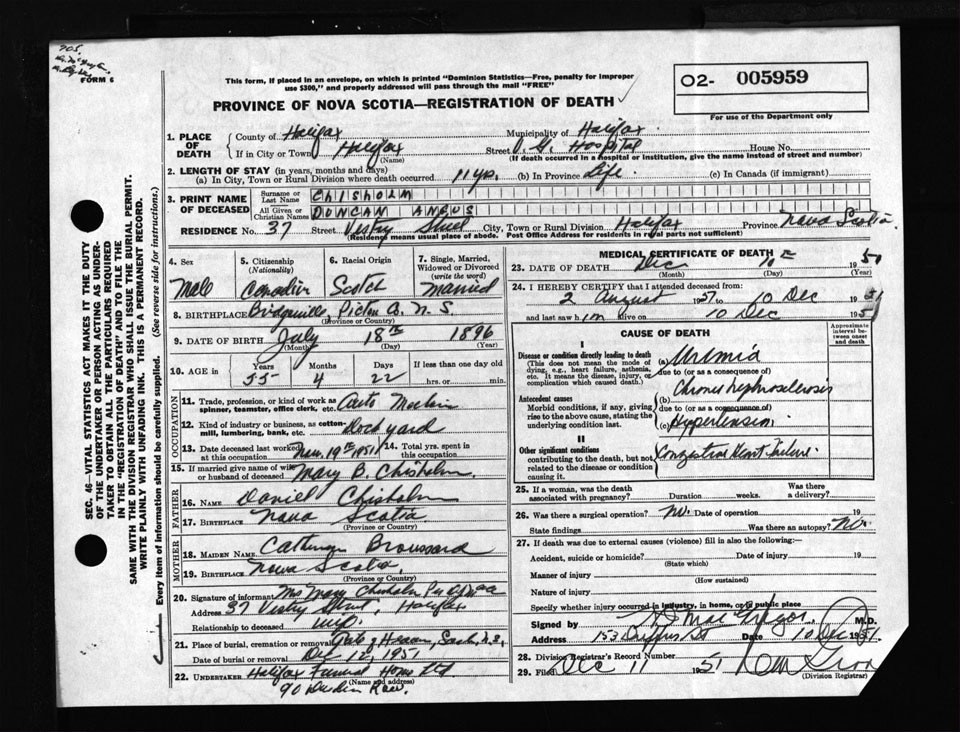 905.
FORM 6
This form, if placed in an envelope, on which is printed "Dominion Statistics—Free, penalty for improper
use $300," and properly addressed will pass through the mail "FREE"
PROVINCE OF NOVA SCOTIA—REGISTRATION OF DEATH
O2- 005959
For use of the Department only
SEC. 46—VITAL STATISTICS ACT MAKES IT THE DUTY
OF THE UNDERTAKER OR PERSON ACTING AS UNDER-
TAKER TO OBTAIN ALL THE PARTICULARS REQUIRED
IN THE "REGISTRATION OF DEATH" AND TO FILE THE
SAME WITH THE DIVISION REGISTRAR WHO SHALL ISSUE THE BURIAL PERMIT.
WRITE PLAINLY WITH UNFADING INK. THIS IS A PERMANENT RECORD.
Every item of information should be carefully supplied. (See reverse side for instructions.)
1. PLACE OF DEATH
County of Halifax Municipality of Halifax
If in City or Town Halifax Street V. G. Hospital House No.
(Name) (If death occurred in a hospital or institution, give the name instead of street and number)
2. LENGTH OF STAY (in years, months and days)
(a) In City, Town or Rural Division where death occurred 11 yrs. (b) In Province Life. (c) In Canada (if immigrant)
3. PRINT NAME OF DECEASED
Surname or Last Name CHISHOLM
All Given or Christian Names DUNCAN ANGUS
RESIDENCE No. 37 Street Vestry Street City, Town or Rural Division Halifax Province Nova Scotia
(Residence means usual place of abode. Post Office Address for residents in rural parts not sufficient)
4. Sex Male
5. Citizenship (Nationality) Canadian
6. Racial Origin Scotch
7. Single, Married, Widowed or Divorced (write the word) Married
8. BIRTHPLACE Bridgeville, Pictou Co. N. S.
(Province or Country)
9. DATE OF BIRTH July 18th 1896
(Month) (Day) (Year)
10. AGE in Years 55 Months 4 Days 22 If less than one day hrs. or min.
OCCUPATION
11. Trade, profession, or kind of work as spinner, teamster, office clerk, etc. Auto
12. Kind of industry or business, as cotton-mill, lumbering, bank, etc. Dockyard
13. Date deceased last worked at this occupation Nov. 19th 1951
14. Total yrs. spent in this occupation
15. If married give name of wife or husband of deceased Mary B. Chisholm
FATHER
16. NAME Daniel Chisholm
17. BIRTHPLACE Nova Scotia
(Province or Country)
MOTHER
18. MAIDEN NAME Broussard
19. BIRTHPLACE Nova Scotia
(Province or Country)
20. Signature of informant Mrs Mary Chisholm
Address 37 Vestry Street, Halifax
Relationship to deceased wife
21. Place of burial, cremation or removal Gate of Heaven, Sack. N.S.
Date of burial or removal Dec 12, 1951
22. UNDERTAKER Halifax Funeral Home Ltd
(Name and address)
90 Row.
MEDICAL CERTIFICATE OF DEATH
23. DATE OF DEATH Dec 10th 1951
(Month) (Day) (Year)
24. I HEREBY CERTIFY that I attended deceased from:
2 August 1951 to 10 Dec 1951
and last saw him alive on 10 Dec 1951
CAUSE OF DEATH
Approximate interval between onset and death
I
Disease or condition directly leading to death
(This does not mean the mode of dying, e.g., heart failure, asthenia, etc. It means the disease, injury, or complication which caused death.)
(a) Uremia
due to (or as a consequence of)
Antecedent causes
Morbid conditions, if any, giving rise to the above cause, stating the underlying condition last.
(b) Chronic nephrosclerosis
due to (or as a consequence of)
(c) Hypertension
II
Other significant conditions
contributing to the death, but not related to the disease or condition causing it.
Congestive Heart Failure.
25. If a woman, was the death associated with pregnancy? Duration weeks. Was there a delivery?
26. Was there a surgical operation? No. Date of operation 19
State findings Was there an autopsy? No.
27. If death was due to external causes (violence) fill in also the following:—
Accident, suicide or homicide? Date of injury 19
(State which)
Manner of injury
(How sustained)
Nature of injury
Specify whether injury occurred in industry, in home, or in public place
Signed by M.D.
Address 153 St Date 10 Dec 1951.
28. Division Registrar's Record Number
29. Filed Dec 11 1951
(Division Registrar)